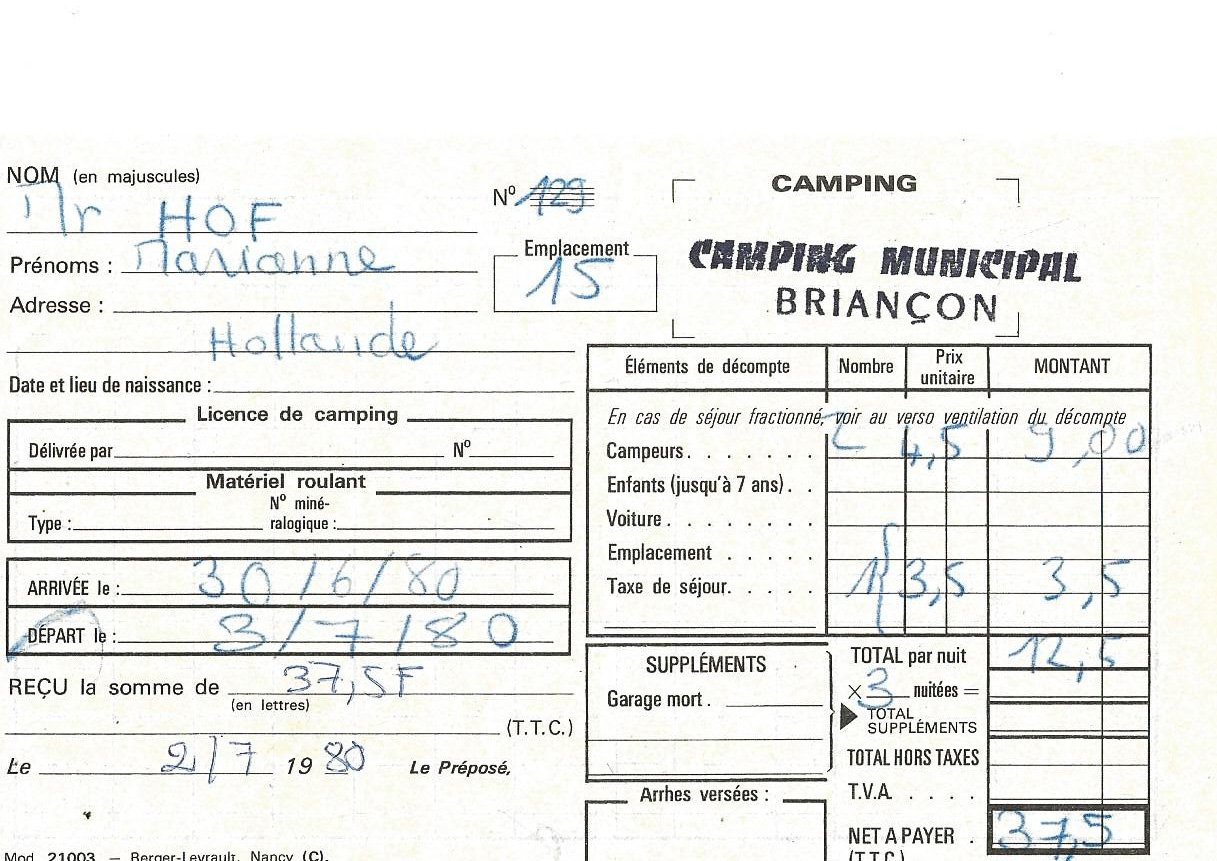 NOM (en majuscules)
Mr HOF
Prénoms : Marianne
Adresse :
Hollande
Date et lieu de naissance :
Nº 129
Emplacement
15
CAMPING
CAMPING MUNICIPAL
BRIANÇON
Licence de camping
Délivrée par Nº
Matériel roulant
Type : Nº miné-
ralogique :
ARRIVÉE le : 30/6/80
DÉPART le : 3/7/80
REÇU la somme de 37,5F
(en lettres)
(T.T.C.)
Le 2/7 1980 Le Préposé,
Mod. 21003 — Berger-Levrault, Nancy (C).
Éléments de décompte Nombre Prix unitaire MONTANT
En cas de séjour fractionné, voir au verso ventilation du décompte
Campeurs . . . . . . . 2 4,5 9,00
Enfants (jusqu'à 7 ans) . .
Voiture . . . . . . . .
Emplacement . . . . .
Taxe de séjour. . . . . 1 3,5 3,5
SUPPLÉMENTS
Garage mort .
TOTAL par nuit 12,5
×3 nuitées =
TOTAL
SUPPLÉMENTS
TOTAL HORS TAXES
T.V.A. . . . .
Arrhes versées :
NET A PAYER . 37,5
(T.T.C.)